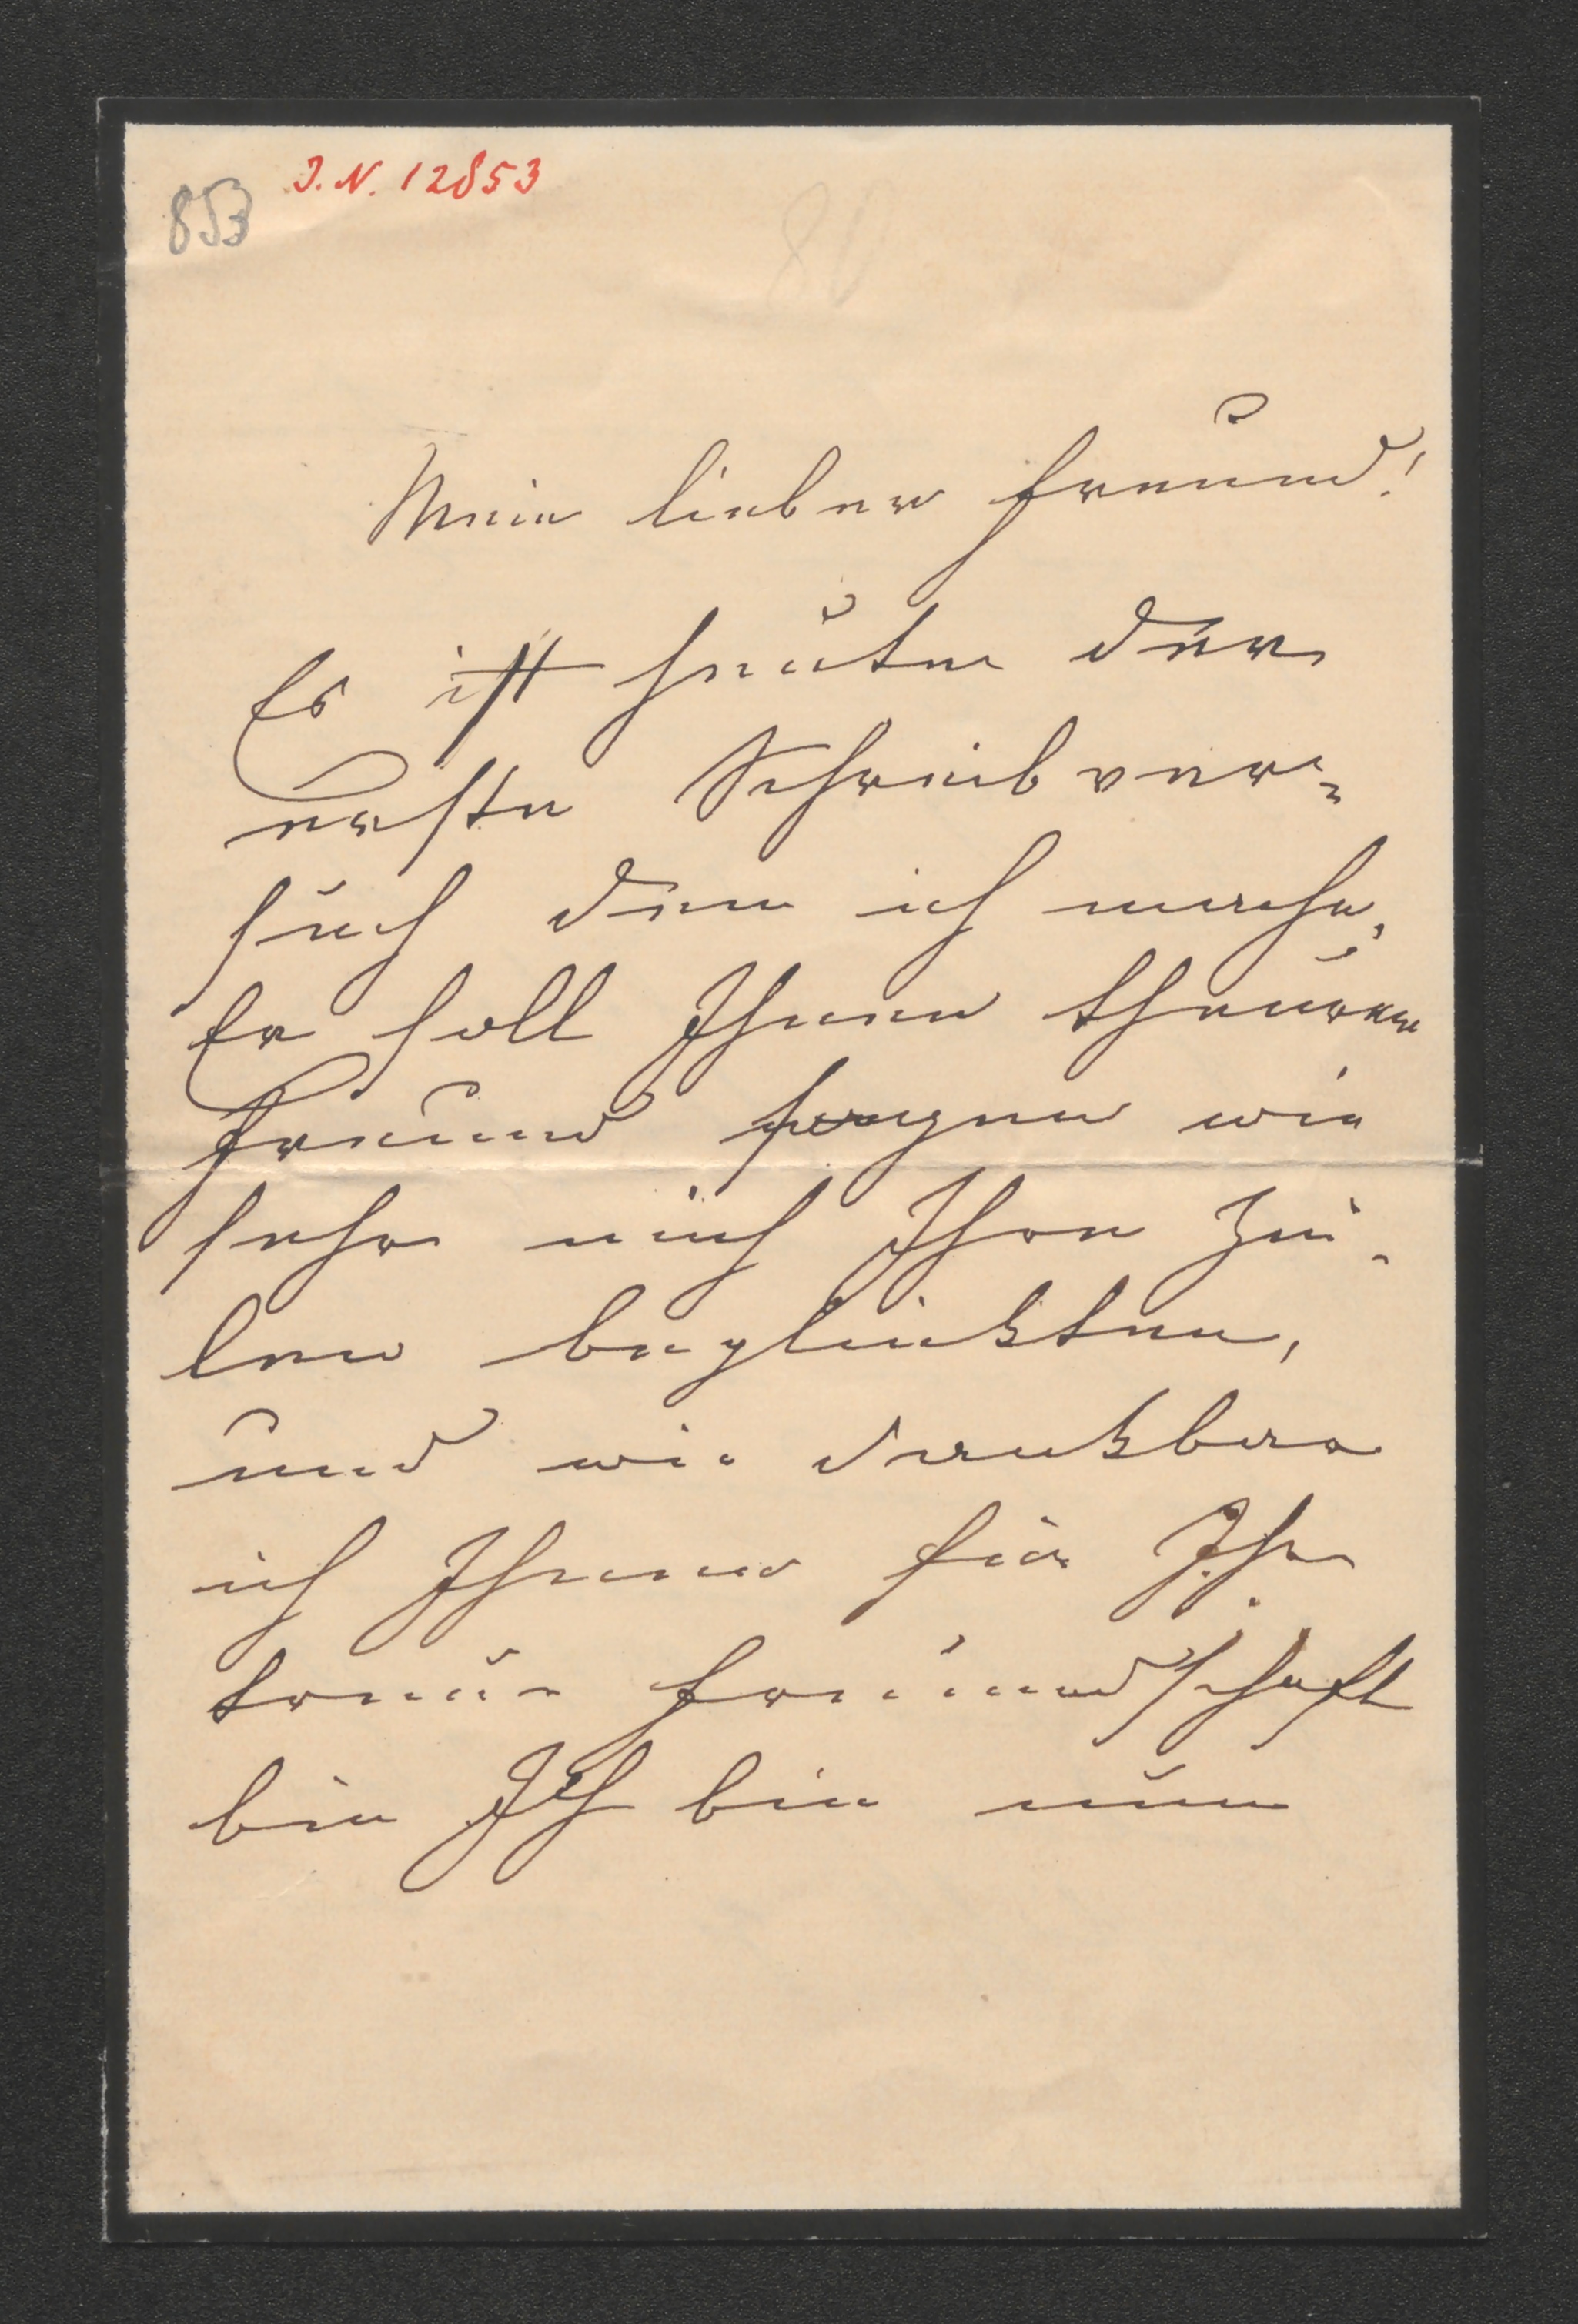 853
I. N. 12853
Mein lieber Freund!
Es ist heute der
erste Schreibver=
such den ich mache,
Er soll Ihnen theurer
Freund sagen wie
sehr mich Ihre Zei-
len beglückten,
und wie dankbar
ich Ihnen für Ihre
treue Freundschaft
bin Ich bin nun